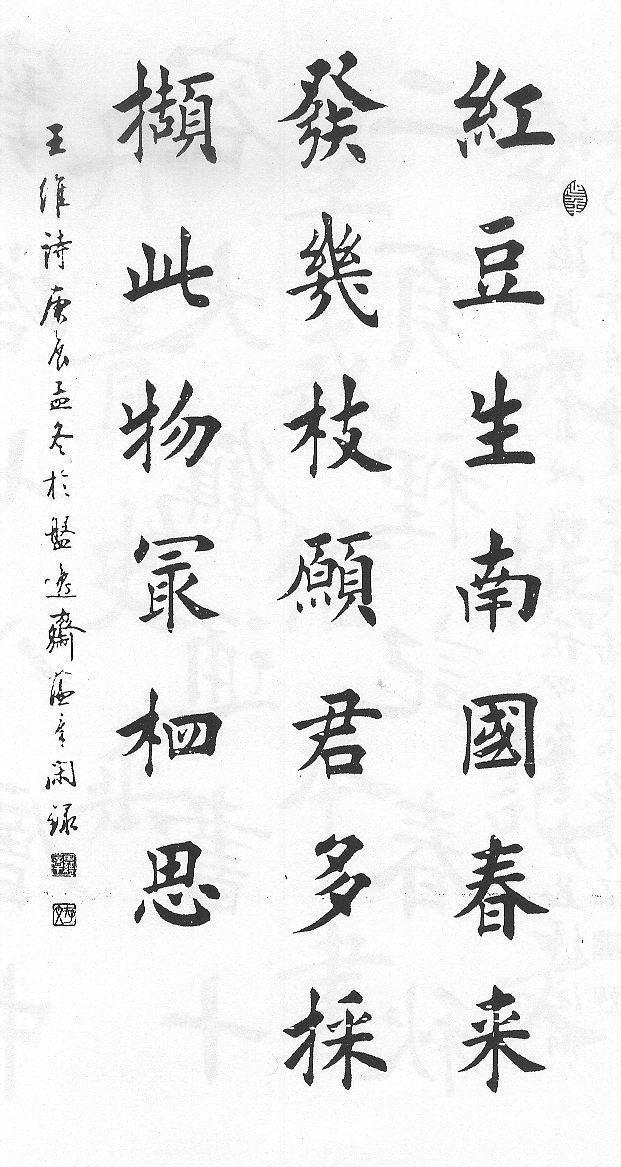 紅豆生南國春来
發幾枝願君多採
擷此物冣相思
王維詩庚辰孟冬於盤逸齋閑録